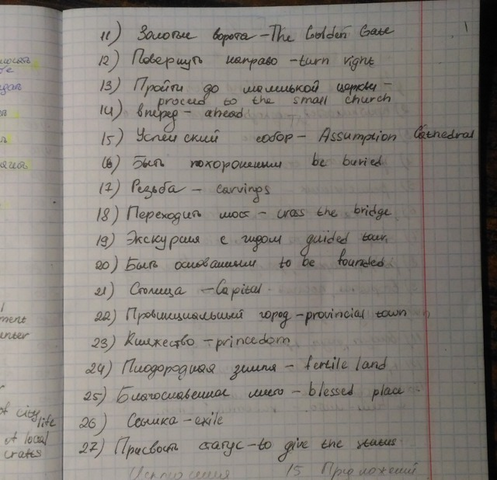 11) Золотые ворота - The Golden Gate
12) Повернуть направо - turn right
13) Пройти до маленькой церкви -
proceed to the small church
14) вперед - ahead
15) Успенский собор - Assumption Cathedral
16) Быть похороненным be buried
17) Резьба - carvings
18) Переходить мост - cross the bridge
19) Экскурсия с гидом guided tour
20) Быть основанным to be founded
21) Столица - Capital
22) Провинциальный город - provincial town
23) Княжество - princedom
24) Плодородная земля - fertile land
25) Благословенное место - blessed place
26) Ссылка - exile
27) Присвоить статус - to give the status
15 Предложений
of city life
of local
crafts